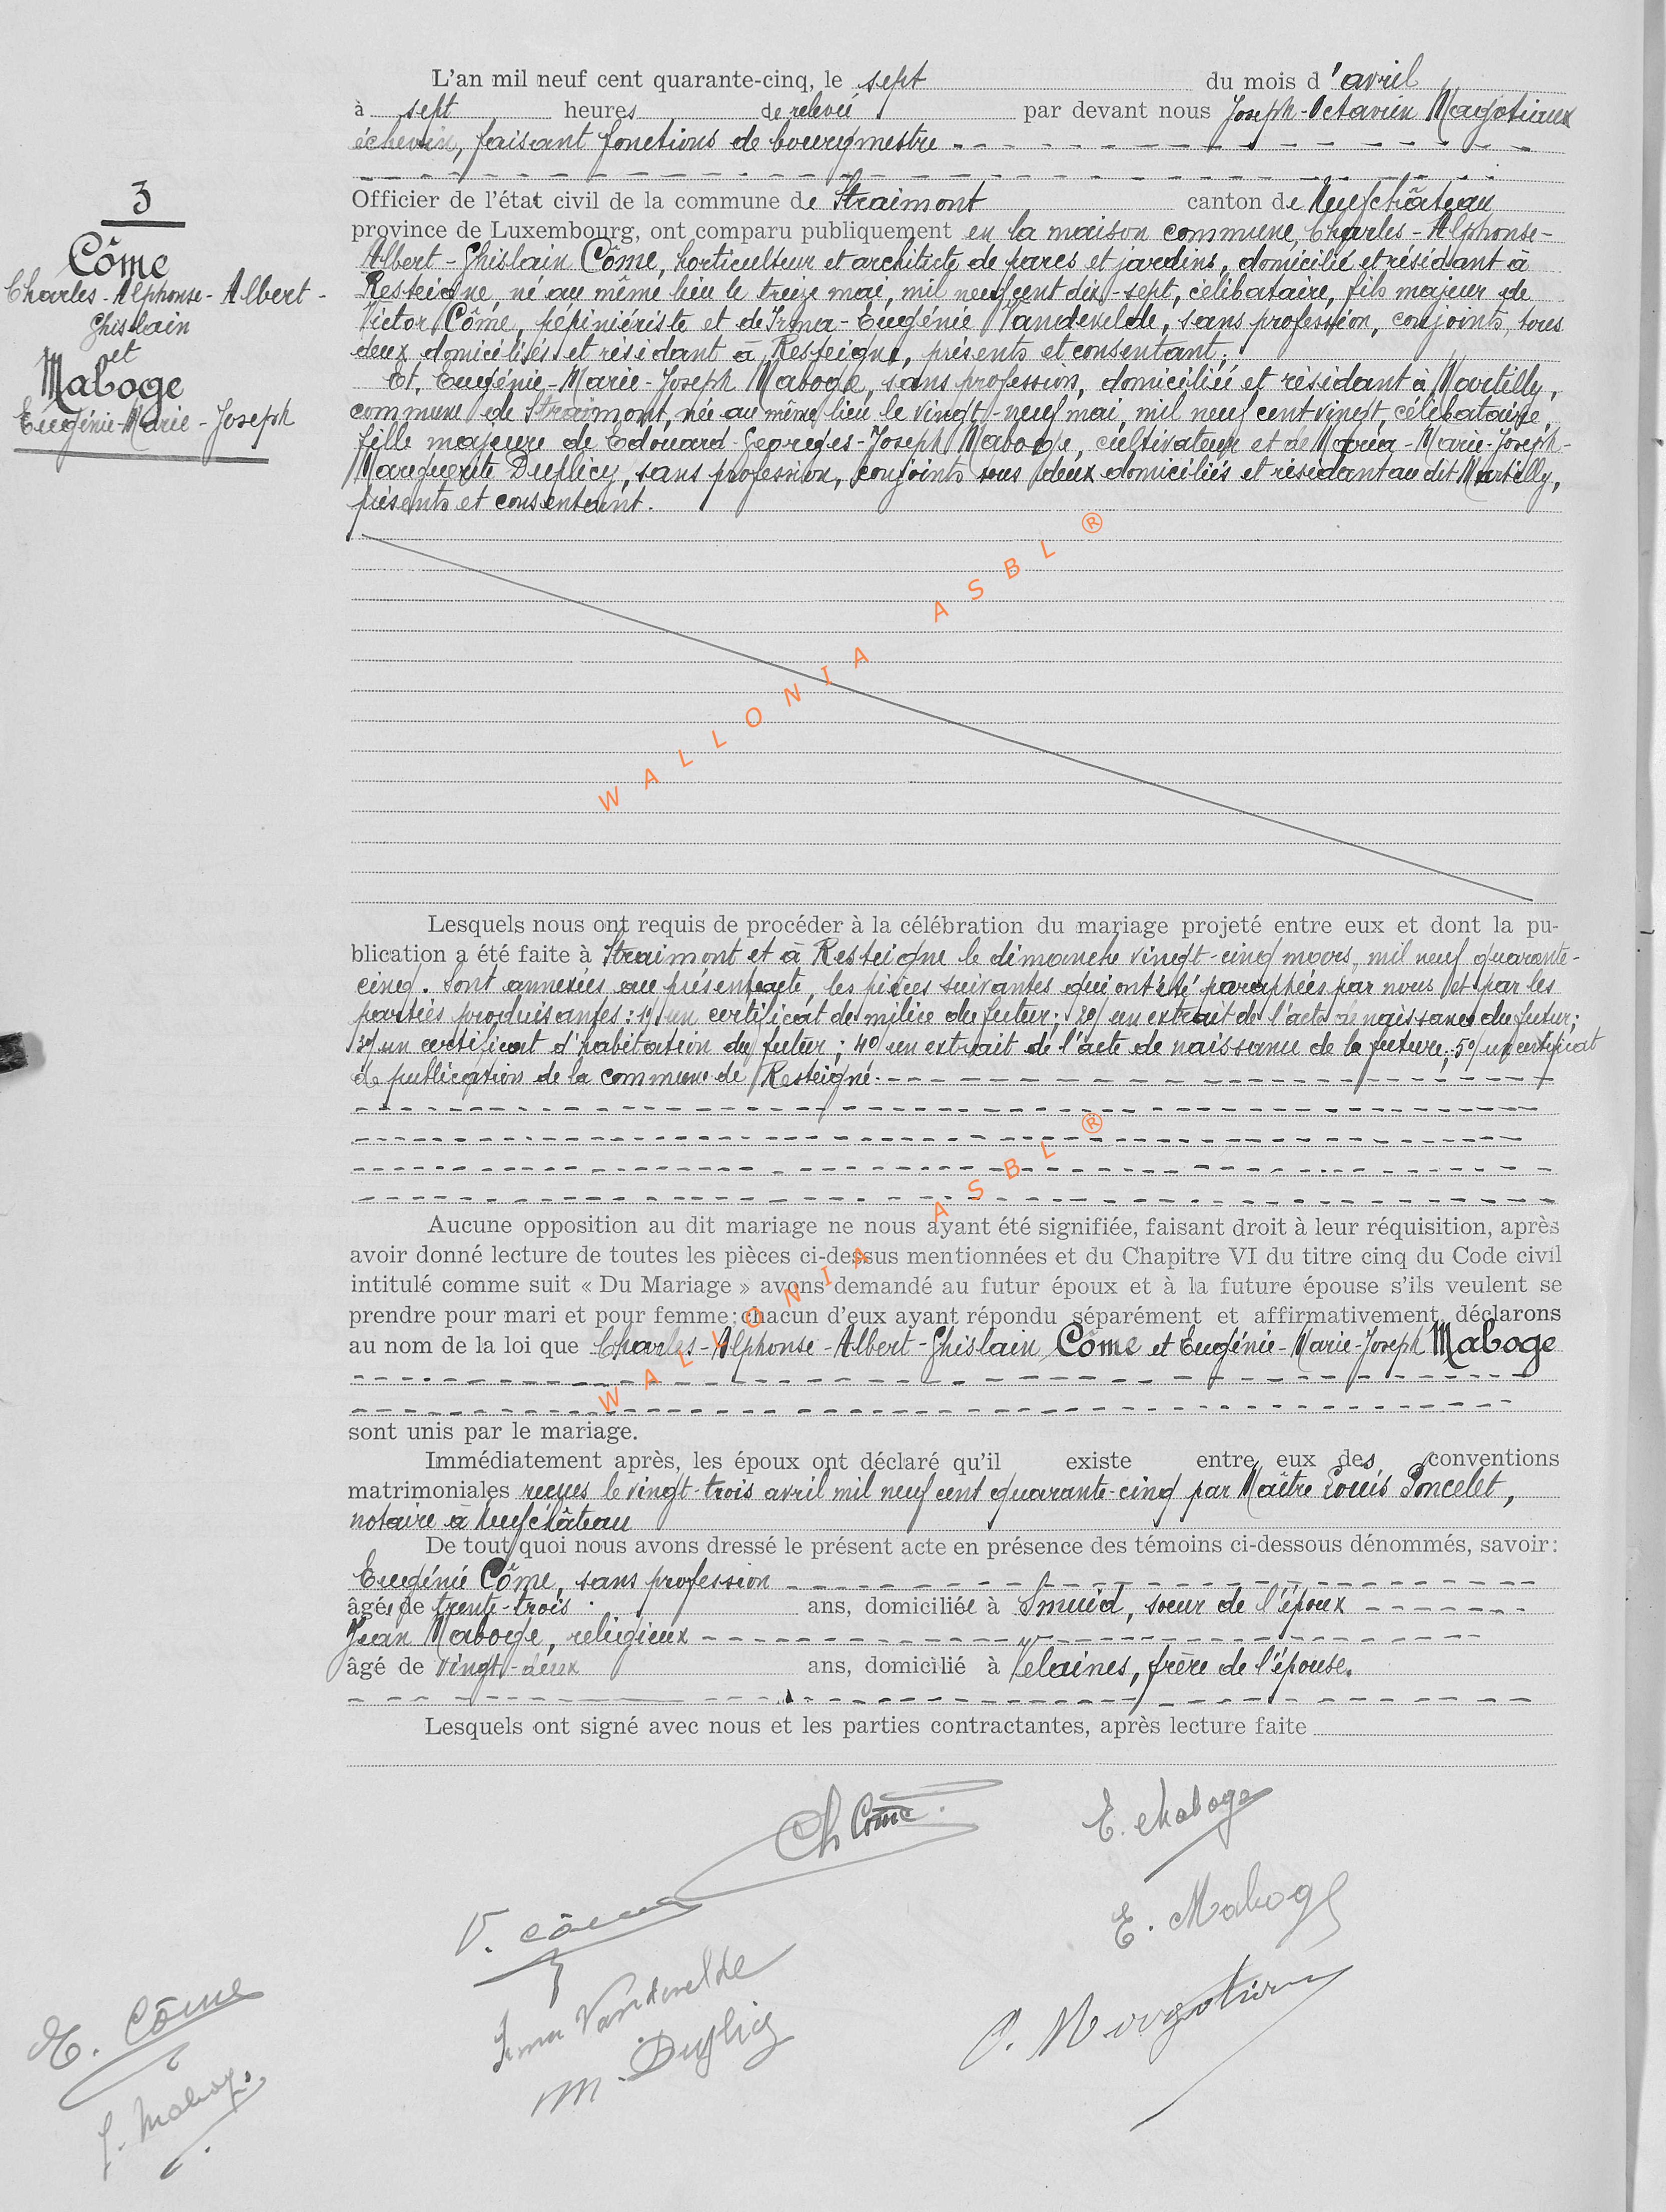 L'an mil neuf cent quarante-cinq, le sept du mois d'avril
à sept heures de relevée par devant nous Joseph-Octavien Magotiaux
échevin, faisant fonctions de bourgmestre
3
Officier de l'état civil de la commune de Straimont canton de Neufchâteau
province de Luxembourg, ont comparu publiquement en la maison commune, Charles-Alphonse-
Côme
Albert-Ghislain Côme, horticulteur et architecte de parcs et jardins, domicilié et résidant à
Charles-Alphonse-Albert-
Resteigne, né au même lieu le treize mai, mil neuf cent dix-sept, célibataire, fils majeur de
Ghislain
Victor Côme, pépiniériste et de Irma-Eugénie Vandevelde, sans profession, conjoints, tous
et
deux domiciliés et résidant à Resteigne, présents et consentant.
Maboge
Et, Eugénie-Marie-Joseph Maboge, sans profession, domiciliée et résidant à Martilly,
Eugénie-Marie-Joseph
commune de Straimont, née au même lieu le vingt-neuf mai, mil neuf cent vingt, célibataire,
fille majeure de Edouard-Georges-Joseph Maboge, cultivateur et de Maria-Marie-Joseph-
Marguerite Duplicy, sans profession, conjoints tous deux domiciliés et résidant au dit Martilly,
présents et consentant.
WALLONIA ASBL ®
Lesquels nous ont requis de procéder à la célébration du mariage projeté entre eux et dont la pu-
blication a été faite à Straimont et à Resteigne le dimanche vingt-cinq mars, mil neuf quarante-
cinq. Sont annexées au présent acte, les pièces suivantes qui ont été paraphées par nous et par les
parties produisantes: 1°/ un certificat de milice du futur; 2°/ un extrait de l'acte de naissance du futur;
3°/ un certificat d'habitation du futur; 4°/ un extrait de l'acte de naissance de la future; 5°/ un certificat
de publication de la commune de Resteigne.
WALLONIA ASBL ®
Aucune opposition au dit mariage ne nous ayant été signifiée, faisant droit à leur réquisition, après
avoir donné lecture de toutes les pièces ci-dessus mentionnées et du Chapitre VI du titre cinq du Code civil
intitulé comme suit « Du Mariage » avons demandé au futur époux et à la future épouse s'ils veulent se
prendre pour mari et pour femme: chacun d'eux ayant répondu séparément et affirmativement, déclarons
au nom de la loi que Charles-Alphonse-Albert-Ghislain Côme et Eugénie-Marie-Joseph Maboge
sont unis par le mariage.
Immédiatement après, les époux ont déclaré qu'il existe entre eux des conventions
matrimoniales reçues le vingt-trois avril mil neuf cent quarante-cinq par Maître Louis Poncelet,
notaire à Neufchâteau
De tout quoi nous avons dressé le présent acte en présence des témoins ci-dessous dénommés, savoir:
Eugénie Côme, sans profession
âgée de trente-trois ans, domiciliée à Smuid, soeur de l'époux
Jean Maboge, religieux
âgé de vingt-deux ans, domicilié à Velaines, frère de l'épouse.
Lesquels ont signé avec nous et les parties contractantes, après lecture faite
Ch Côme
E. Maboge
V. Côme
E. Maboge
Irma Vandevelde
E. Côme
O. Magotiaux
M. Duplicy
J. Maboge